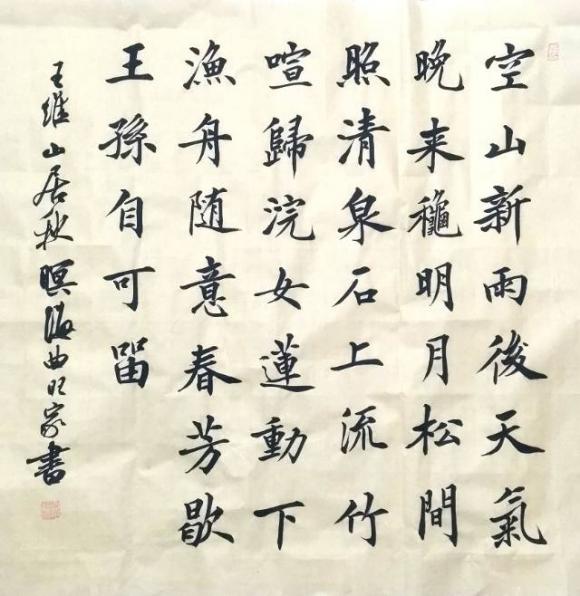 空山新雨後天氣
晚来穐明月松間
照清泉石上流竹
喧歸浣女蓮動下
漁舟随意春芳歇
王孫自可留
王維山居秋暝海曲家書